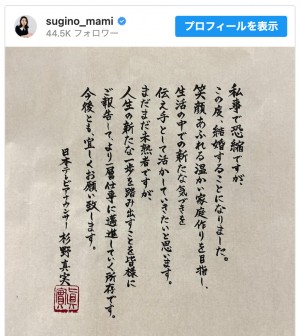 sugino_mami
44.5K フォロワー
プロフィールを表示
私事で恐縮ですが、
この度、結婚することになりました。
笑顔あふれる温かい家庭作りを目指し、
生活の中での新たな気づきを
伝え手として活かしていきたいと思います。
まだまだ未熟者ですが、
人生の新たな一歩を踏み出すことを皆様に
ご報告して、より一層仕事に邁進していく所存です。
今後とも、宜しくお願い致します。
日本テレビアナウンサー 杉野真実